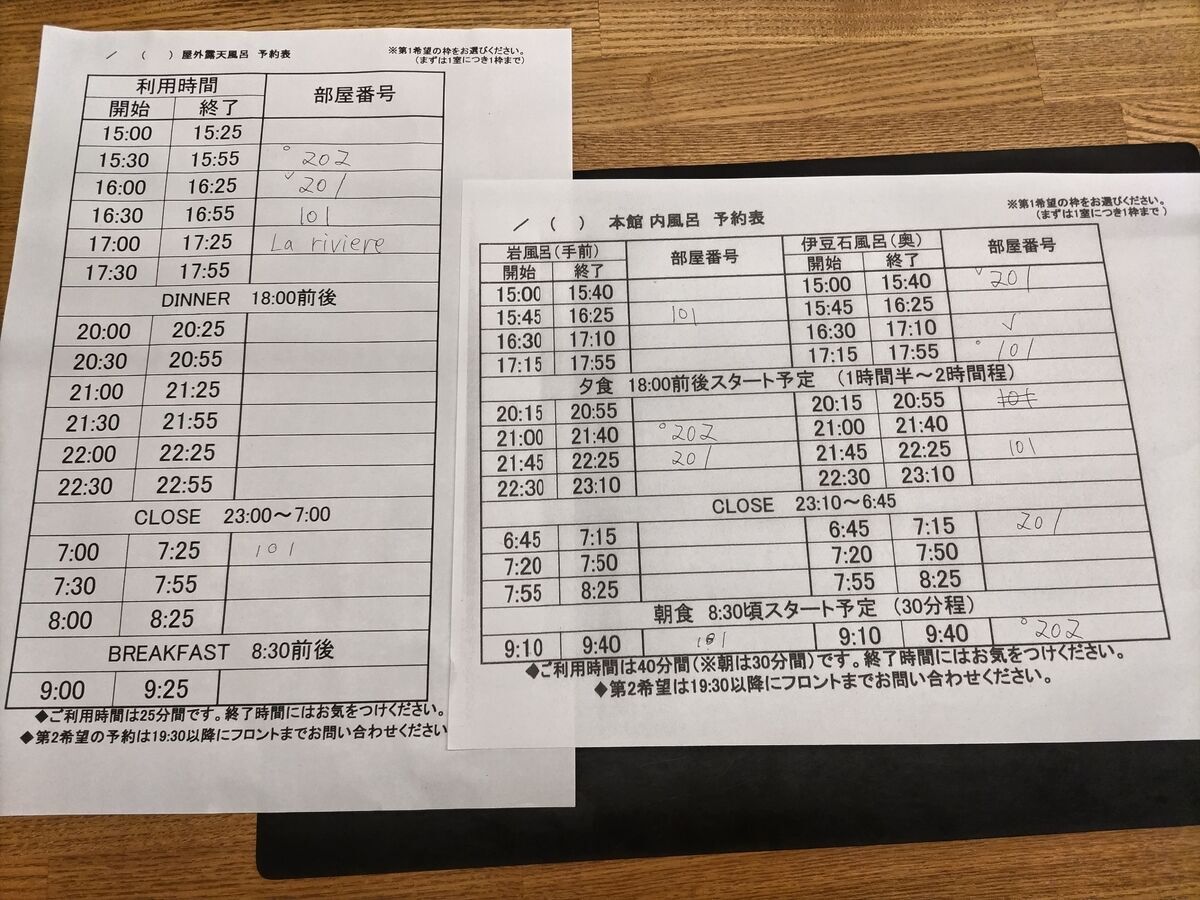 ／ （ ） 屋外露天風呂 予約表
※第1希望の枠をお選びください。
（まずは1室につき1枠まで）
利用時間 部屋番号
開始 終了
15:00 15:25
15:30 15:55 202
16:00 16:25 201
16:30 16:55 101
17:00 17:25 La riviere
17:30 17:55
DINNER 18:00前後
20:00 20:25
20:30 20:55
21:00 21:25
21:30 21:55
22:00 22:25
22:30 22:55
CLOSE 23:00～7:00
7:00 7:25 101
7:30 7:55
8:00 8:25
BREAKFAST 8:30前後
9:00 9:25
◆ご利用時間は25分間です。終了時間にはお気をつけください。
◆第2希望の予約は19:30以降にフロントまでお問い合わせください
／ （ ） 本館 内風呂 予約表
※第1希望の枠をお選びください。
（まずは1室につき1枠まで）
岩風呂（手前） 部屋番号 伊豆石風呂（奥） 部屋番号
開始 終了 開始 終了
15:00 15:40 15:00 15:40 201
15:45 16:25 101 15:45 16:25
16:30 17:10 16:30 17:10 ✓
17:15 17:55 17:15 17:55 101
夕食 18:00前後スタート予定 （1時間半～2時間程）
20:15 20:55 20:15 20:55 101
21:00 21:40 202 21:00 21:40
21:45 22:25 201 21:45 22:25 101
22:30 23:10 22:30 23:10
CLOSE 23:10～6:45
6:45 7:15 6:45 7:15 201
7:20 7:50 7:20 7:50
7:55 8:25 7:55 8:25
朝食 8:30頃スタート予定 （30分程）
9:10 9:40 101 9:10 9:40 202
◆ご利用時間は40分間（※朝は30分間）です。終了時間にはお気をつけください。
◆第2希望は19:30以降にフロントまでお問い合わせください。